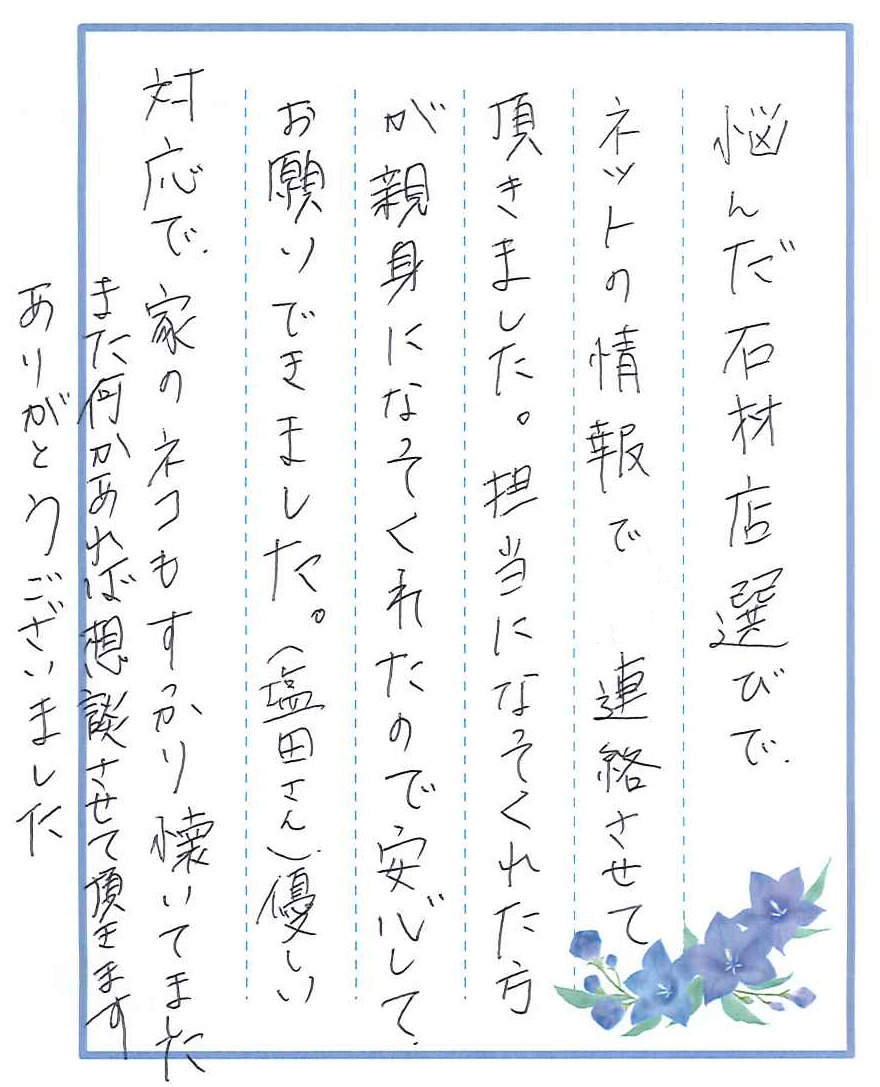 悩んだ石材店選びで、
ネットの情報で 連絡させて
頂きました。担当になってくれた方
が親身になってくれたので安心して、
お願いできました。(塩田さん)優しい
対応で、家のネコもすっかり懐いてました
また何かあれば想談させて頂きます
ありがとうございました